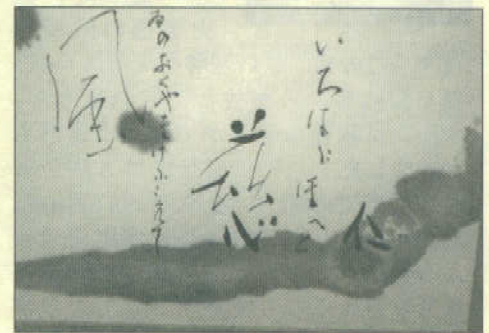 いろはに
ほへと
慈
ゐのおくやまけふこえて
風